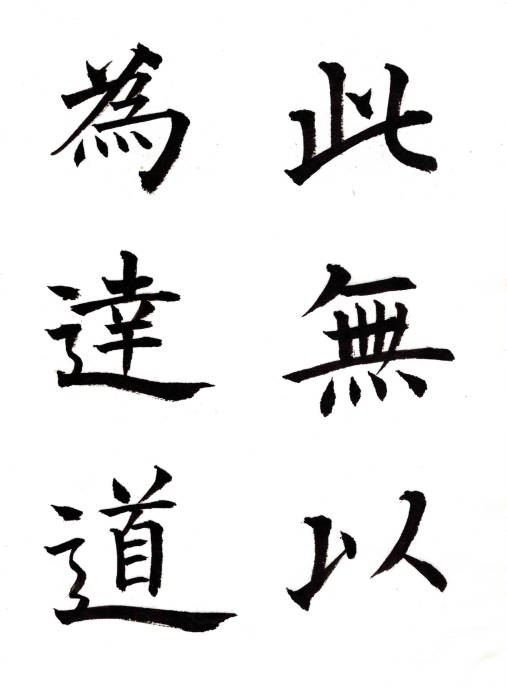 此無以
為達道